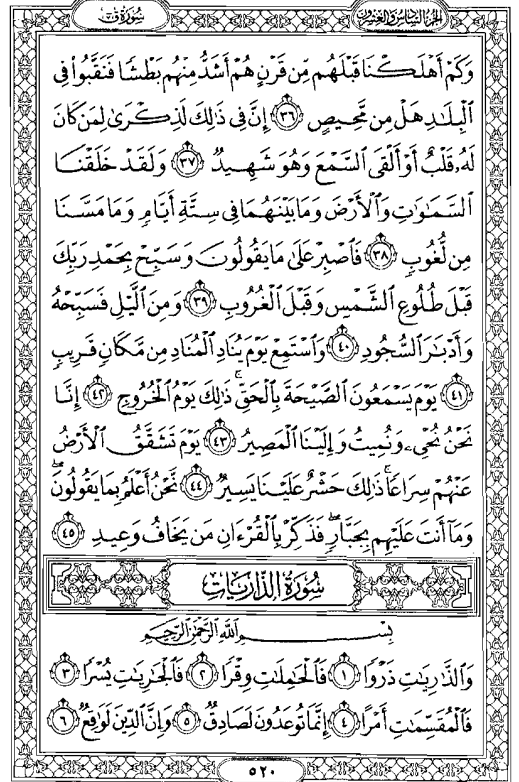 الجزء السادس والعشرون
سورة ق
وَكَمْ أَهْلَكْنَا قَبْلَهُم مِّن قَرْنٍ هُمْ أَشَدُّ مِنْهُم بَطْشًا فَنَقَّبُوا۟ فِى
ٱلْبِلَـٰدِ هَلْ مِن مَّحِيصٍ ٣٦ إِنَّ فِى ذَٰلِكَ لَذِكْرَىٰ لِمَن كَانَ
لَهُۥ قَلْبٌ أَوْ أَلْقَى ٱلسَّمْعَ وَهُوَ شَهِيدٌ ٣٧ وَلَقَدْ خَلَقْنَا
ٱلسَّمَـٰوَٰتِ وَٱلْأَرْضَ وَمَا بَيْنَهُمَا فِى سِتَّةِ أَيَّامٍ وَمَا مَسَّنَا
مِن لُّغُوبٍ ٣٨ فَٱصْبِرْ عَلَىٰ مَا يَقُولُونَ وَسَبِّحْ بِحَمْدِ رَبِّكَ
قَبْلَ طُلُوعِ ٱلشَّمْسِ وَقَبْلَ ٱلْغُرُوبِ ٣٩ وَمِنَ ٱلَّيْلِ فَسَبِّحْهُ
وَأَدْبَـٰرَ ٱلسُّجُودِ ٤٠ وَٱسْتَمِعْ يَوْمَ يُنَادِ ٱلْمُنَادِ مِن مَّكَانٍ قَرِيبٍ
٤١ يَوْمَ يَسْمَعُونَ ٱلصَّيْحَةَ بِٱلْحَقِّ ۚ ذَٰلِكَ يَوْمُ ٱلْخُرُوجِ ٤٢ إِنَّا
نَحْنُ نُحْىِۦ وَنُمِيتُ وَإِلَيْنَا ٱلْمَصِيرُ ٤٣ يَوْمَ تَشَقَّقُ ٱلْأَرْضُ
عَنْهُمْ سِرَاعًا ۚ ذَٰلِكَ حَشْرٌ عَلَيْنَا يَسِيرٌ ٤٤ نَّحْنُ أَعْلَمُ بِمَا يَقُولُونَ ۖ
وَمَآ أَنتَ عَلَيْهِم بِجَبَّارٍ ۖ فَذَكِّرْ بِٱلْقُرْءَانِ مَن يَخَافُ وَعِيدِ ٤٥
سُورَةُ الذَّارِيَاتِ
بِسْمِ ٱللَّهِ ٱلرَّحْمَـٰنِ ٱلرَّحِيمِ
وَٱلذَّٰرِيَـٰتِ ذَرْوًا ١ فَٱلْحَـٰمِلَـٰتِ وِقْرًا ٢ فَٱلْجَـٰرِيَـٰتِ يُسْرًا ٣
فَٱلْمُقَسِّمَـٰتِ أَمْرًا ٤ إِنَّمَا تُوعَدُونَ لَصَادِقٌ ٥ وَإِنَّ ٱلدِّينَ لَوَٰقِعٌ ٦
٥٢٠